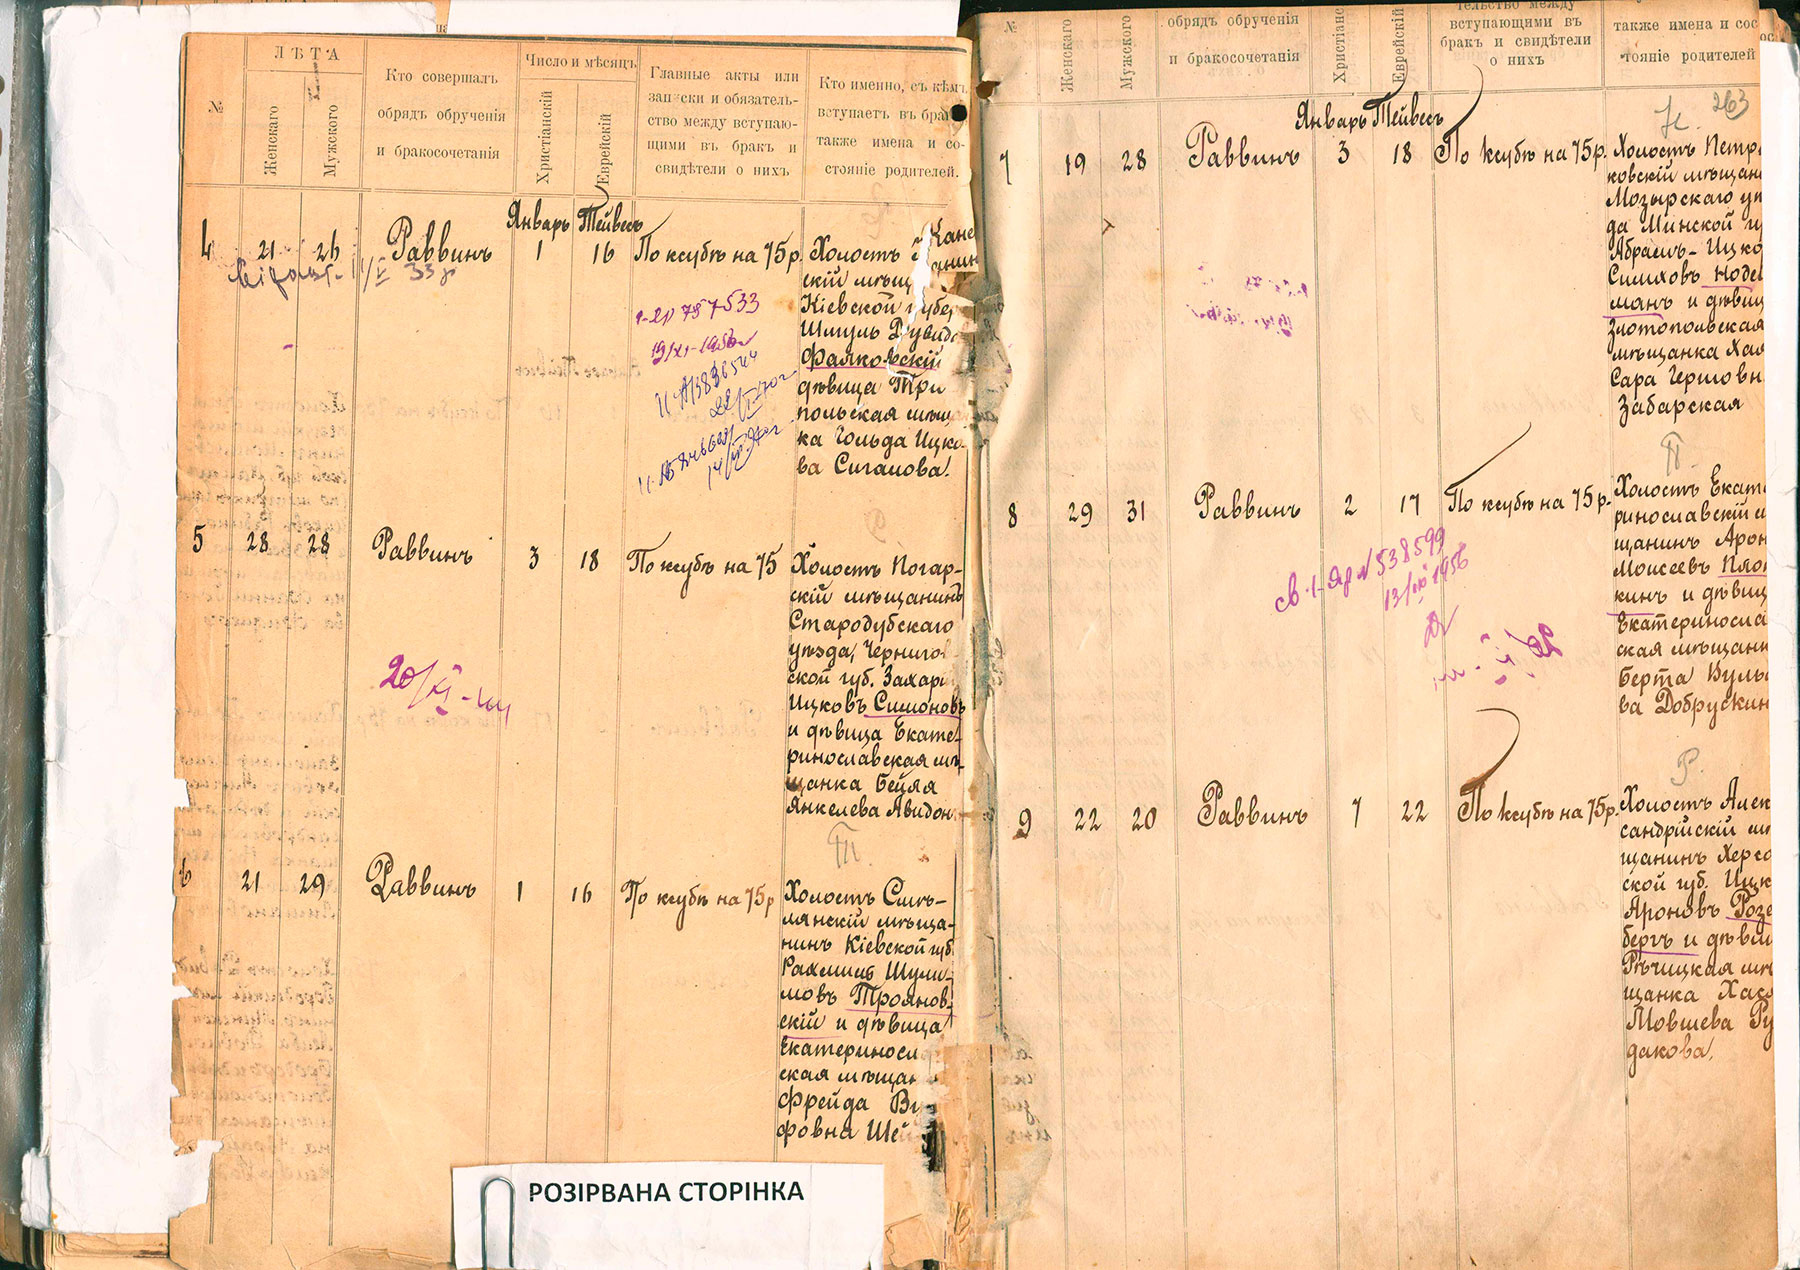 №
ЛѢТА
Женскаго
Мужского
Кто совершалъ
обрядъ обрученія
и бракосочетанія
Число и мѣсяцъ
Христіанскій
Еврейскій
Главные акты или
записки и обязатель-
ство между вступаю-
щими въ бракъ и
свидѣтели о нихъ
Кто именно, съ кѣмъ
вступаетъ въ бракъ
также имена и со-
стояніе родителей.
Январь Тейвесъ
4 21 26 Раввинъ 1 16 По ксубѣ на 75 р.
Холостъ Кане
скій мѣщ
Кіевской губер
Шмуль Дувидо
Фалковскій
дѣвица Три
польская мѣщ
ка Гольда Ицко
ва Сигалова.
1-21 787533
5 28 28 Раввинъ 3 18 По ксубѣ на 75
Холостъ Погар-
скій мѣщанинъ
Стародубскаго
уѣзда, Чернигов
ской губ. Захарій
Ицковъ Симоновъ
и дѣвица Екате-
ринославская мѣ-
щанка Бейля
Янкелева Авидон
П.
6 21 29 Раввинъ 1 16 По ксубѣ на 75 р
Холостъ Смѣ-
лянскій мѣща-
нинъ Кіевской губ
Рахмиль Шули-
мовъ Трояновъ-
скій и дѣвица
Екатериносл
ская мѣщан
Фрейда Ву
фовна Шей
РОЗІРВАНА СТОРІНКА
№
Женскаго
Мужского
обрядъ обрученія
и бракосочетанія
Христіанс
Еврейскій
тельство между
вступающими въ
бракъ и свидѣтели
о нихъ
также имена и сос
тояніе родителей
263
Н.
Январь Тейвесъ
7 19 28 Раввинъ 3 18 По ксубѣ на 75 р.
Холостъ Петри
ковскій мѣщан
Мозырскаго уѣ
да Минской гу
Абрамъ-Ицко
Симховъ Ноде
манъ и дѣвиц
Златопольская
мѣщанка Хая
Сара Гершовн
Забарская
П
8 29 31 Раввинъ 2 17 По ксубѣ на 75 р.
Холостъ Екате
ринославскій м
щанинъ Арон
Моисеевъ Плот
кинъ и дѣвиц
Екатеринослав
ская мѣщанк
Берта Вуль
ва Добрускин
св. 1-яр №538599
13/XII 1956
Р.
9 22 20 Раввинъ 7 22 По ксубѣ на 75 р.
Холостъ Алек
сандрійскій мѣ
щанинъ Херсо
ской губ. Ицк
Ароновъ Розе
бергъ и дѣви
Рѣчицкая мѣ
щанка Хася
Мовшева Ру
дакова.